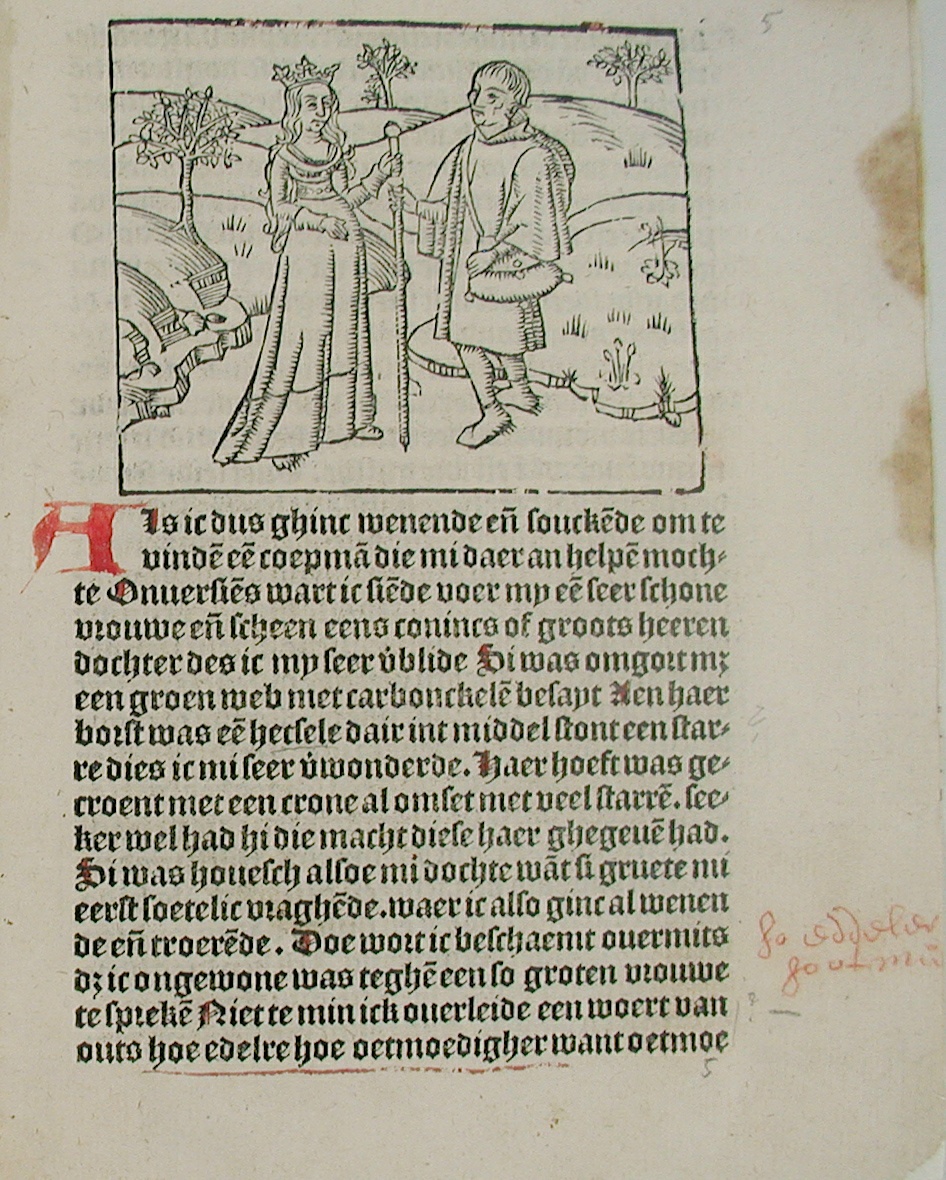 5
Als ic dus ghinc wenende eñ souckẽde om te
vindẽ eẽ coepmã die mi daer an helpẽ moch⸗
te Onuersiẽs wart ic siẽde voer my eẽ seer schone
vrouwe eñ scheen eens conincs of groots heeren
dochter des ic my seer v̾blide Si was omgort mꝫ
een groen web met carbonckelẽ besayt Aen haer
borst was eẽ hecsele dair int middel stont een star⸗
re dies ic mi seer v̾wonderde. Haer hoeft was ge⸗
croent met een crone al omset met veel starrẽ. see⸗
ker wel had hi die macht diese haer ghegeuẽ had.
Si was houesch alsoe mi dochte wãt si gruete mi
eerst soetelic vraghẽde. waer ic also ginc al wenen
de eñ troerẽde. Doe wort ic beschaemt ouermits
dꝫ ic ongewone was teghẽ een so groten vrouwe
te sprekẽ Niet te min ick ouerleide een woert van
outs hoe edelre hoe oetmoedigher want oetmoe
5